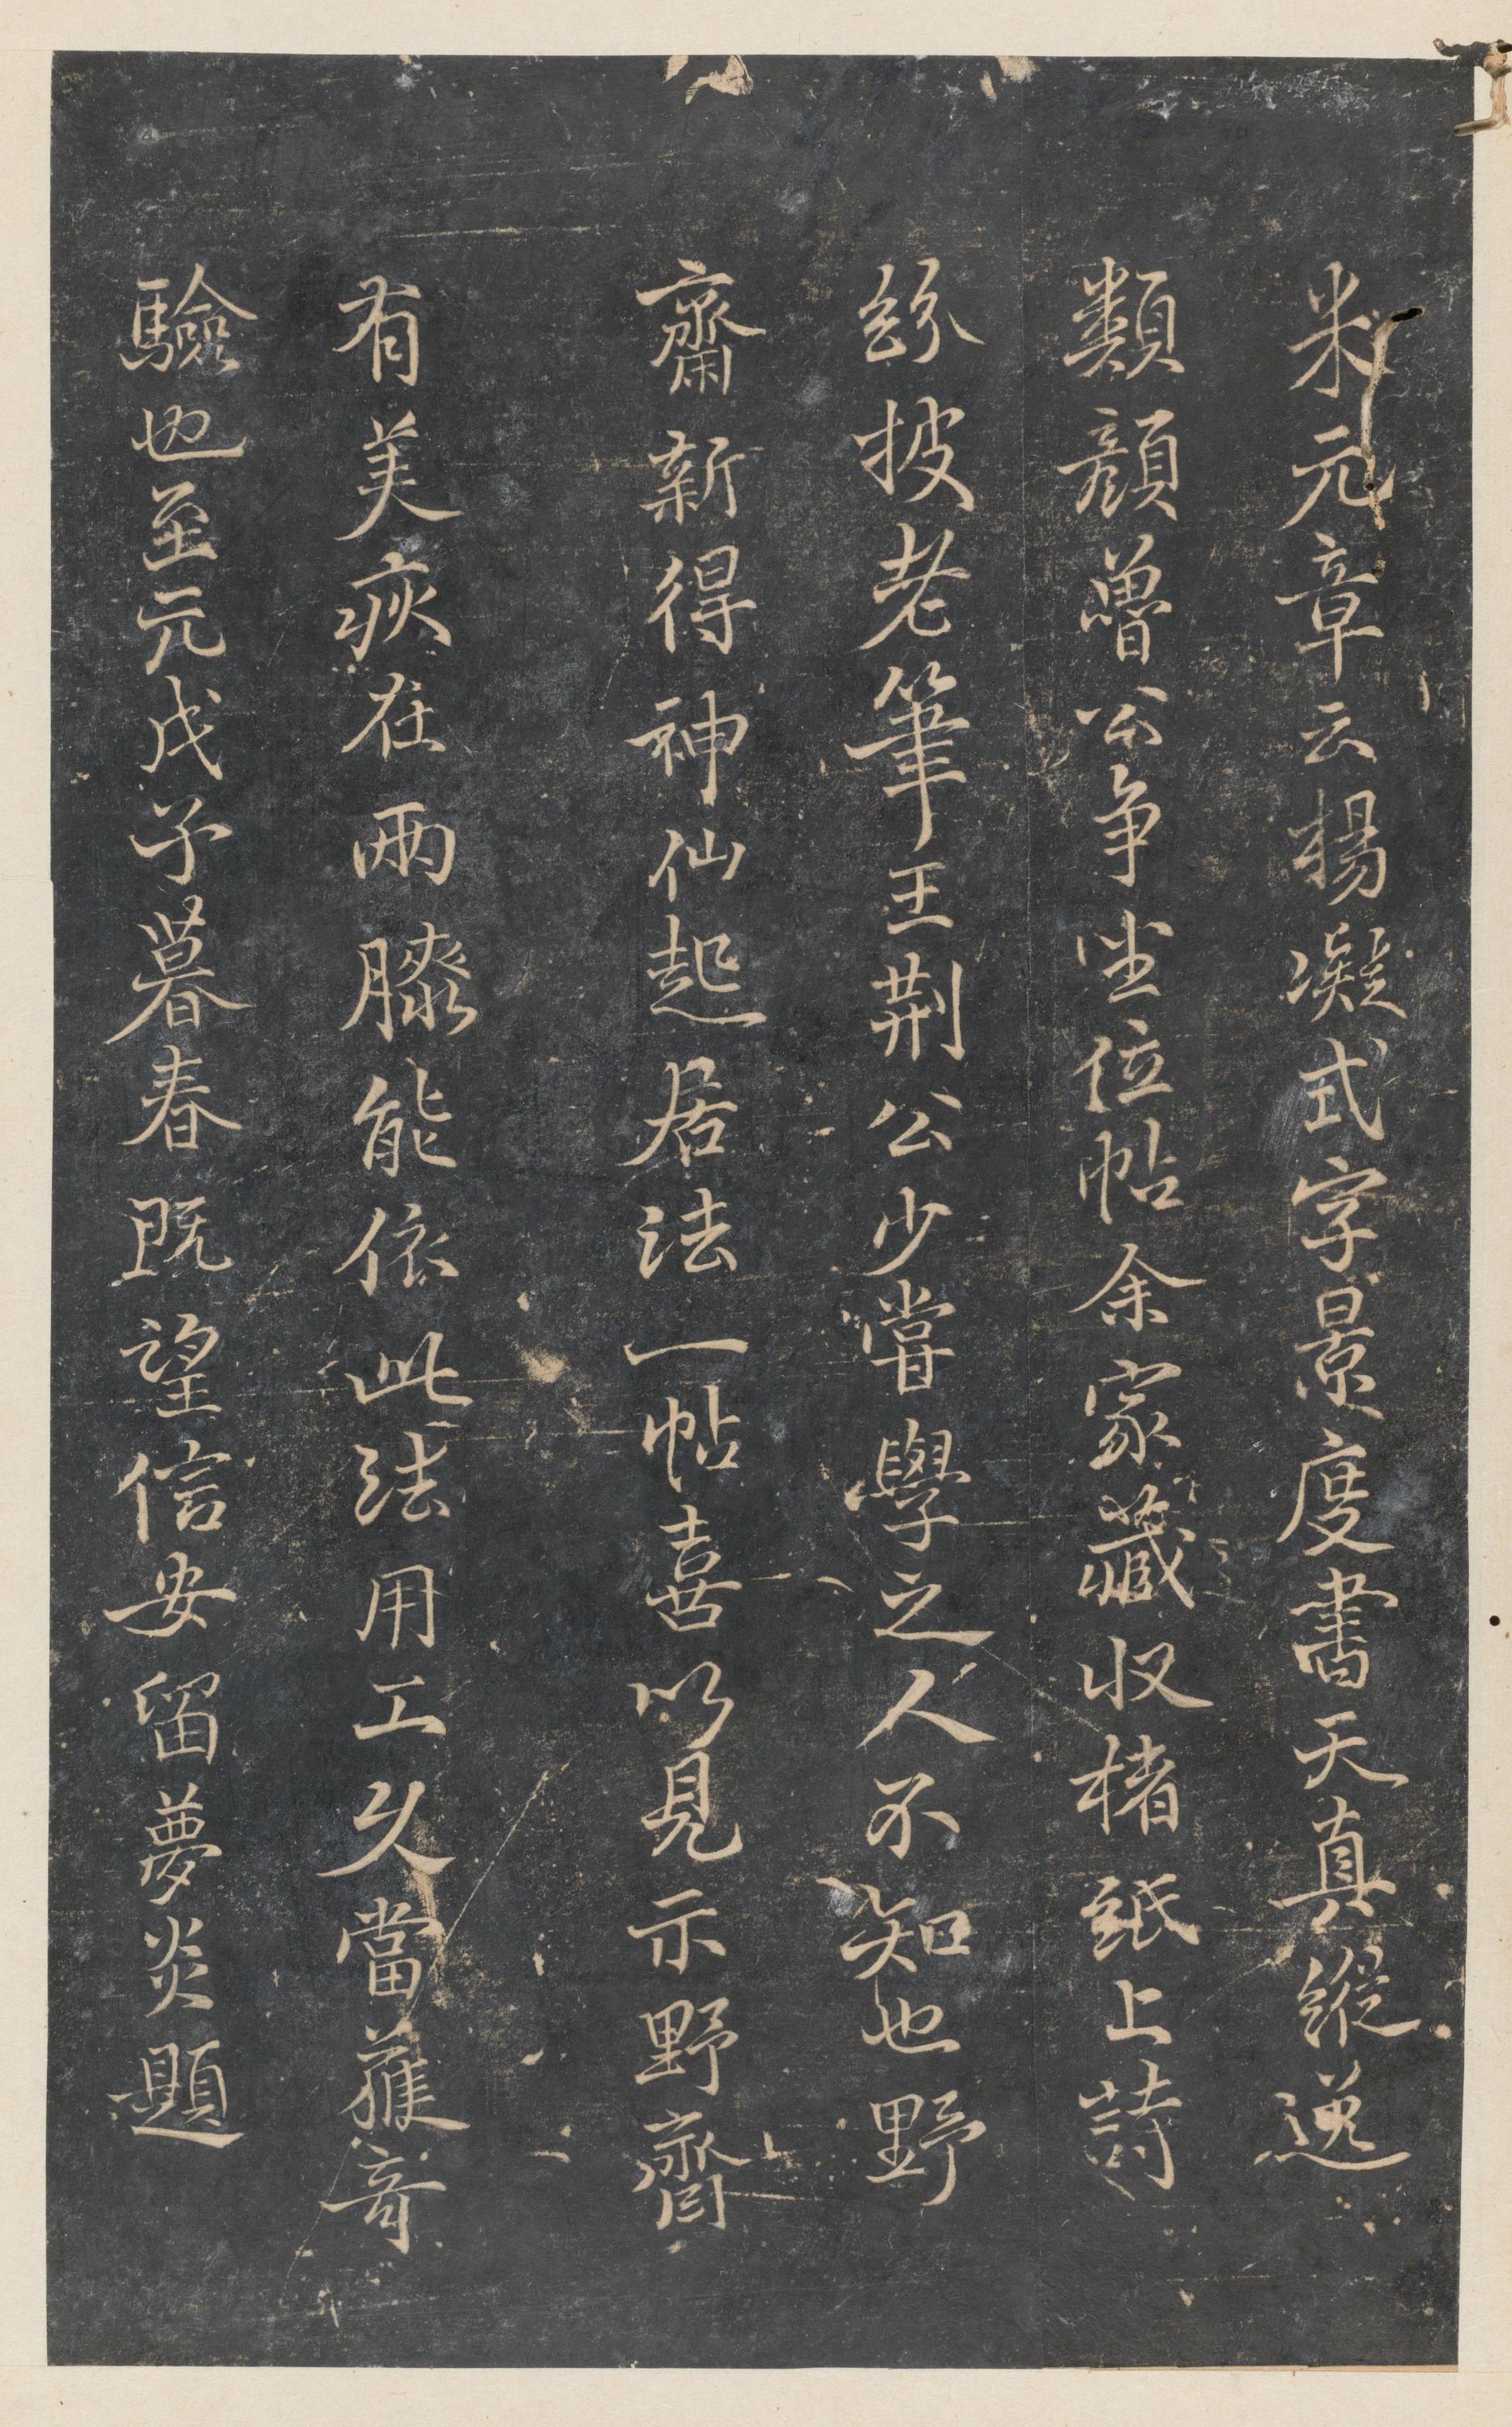 米元章云楊凝式字景度書天真縱逸
類顏魯公爭坐位帖余家藏收楮紙上詩
於披老筆王荊公少嘗學之人不知也野
齋新得神仙起居法一帖喜以見示野齋
有美疢在兩膝能依此法用工久當獲奇
驗也至元戊子暮春既望信安留夢炎題